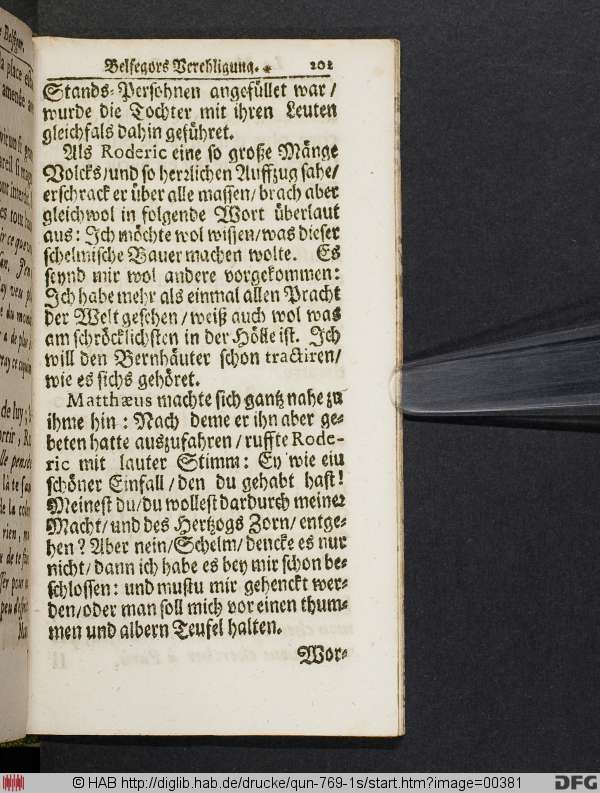 Belfegors Verehligung. 201
Stands-Persohnen angefüllet war /
wurde die Tochter mit ihren Leuten
gleichfals dahin geführet.
Als Roderic eine so große Mänge
Volcks/und so herzlichen Auffzug sahe/
erschrack er über alle massen/brach aber
gleichwol in folgende Wort überlaut
aus: Ich möchte wol wissen/was dieser
schelmische Bauer machen wolte. Es
seynd mir wol andere vorgekommen:
Ich habe mehr als einmal allen Pracht
der Welt gesehen / weiß auch wol was
am schröcklichsten in der Hölle ist. Ich
will den Bernhäuter schon tractiren/
wie es sichs gehöret.
Matthæus machte sich gantz nahe zu
ihme hin : Nach deme er ihn aber ge-
beten hatte auszufahren / ruffte Rode-
ric mit lauter Stimm: Ey wie ein
schöner Einfall /den du gehabt hast!
Meinest du/du wollest dardurch meiner
Macht/und des Hertzogs Zorn/ entge-
hen? Aber nein/Schelm/dencke es nur
nicht/dann ich habe es bey mir schon be-
schlossen: und mustu mir gehenckt wer-
den/oder man soll mich vor einen thum-
men und albern Teufel halten.
Wor-
© HAB http://diglib.hab.de/drucke/qun-769-1s/start.htm?image=00381
DFG